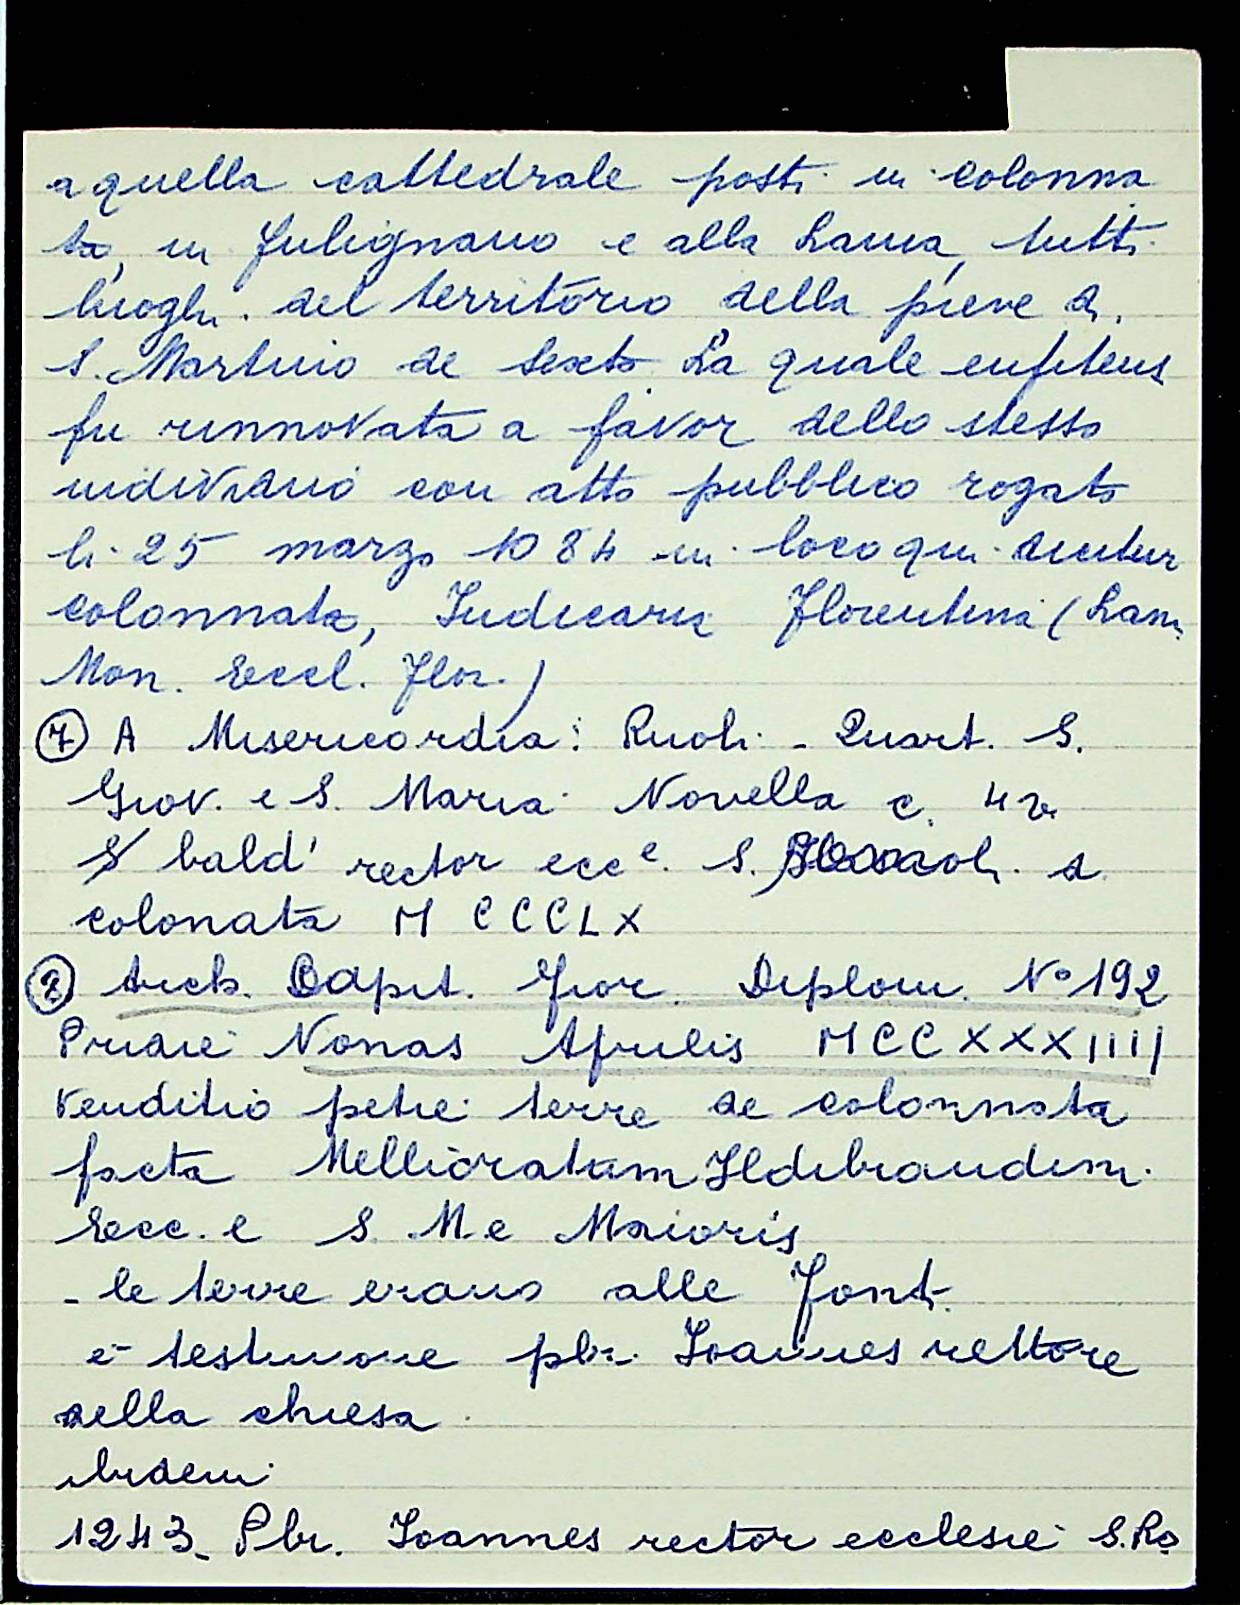 a quella cattedrale posti in colonna
ta, in Fulignano e alla Lama, tutti
luoghi del territorio della pieve di
S. Martino de Sexto. La quale enfiteus
fu rinnovata a favor dello stesso
individuo con atto pubblico rogato
li 25 marzo 1084 in loco qui dicitur
colonnata, Iudicaria Florentina (Lam.
Mon. Eccl. Flor.)
⑦ A Misericordia: Ruoli - Quart. S.
Giov. e S. Maria Novella c. 42
bald' rector ecc e. S. d
colonata M CCCLX
Arch. Capit. Fior. Diplom. N° 192
Pridie Nonas Aprilis MCCXXXIIII
Venditio petie terre de colonnata
facta Mellioratum Ildibrandini
Ecc. e S. M.e Maioris
- le terre erano alle Fonti
e testimone pbr. Ioannes rettore
della chiesa
ibidem
1243. Pbr. Ioannes rector ecclesie S. Ro